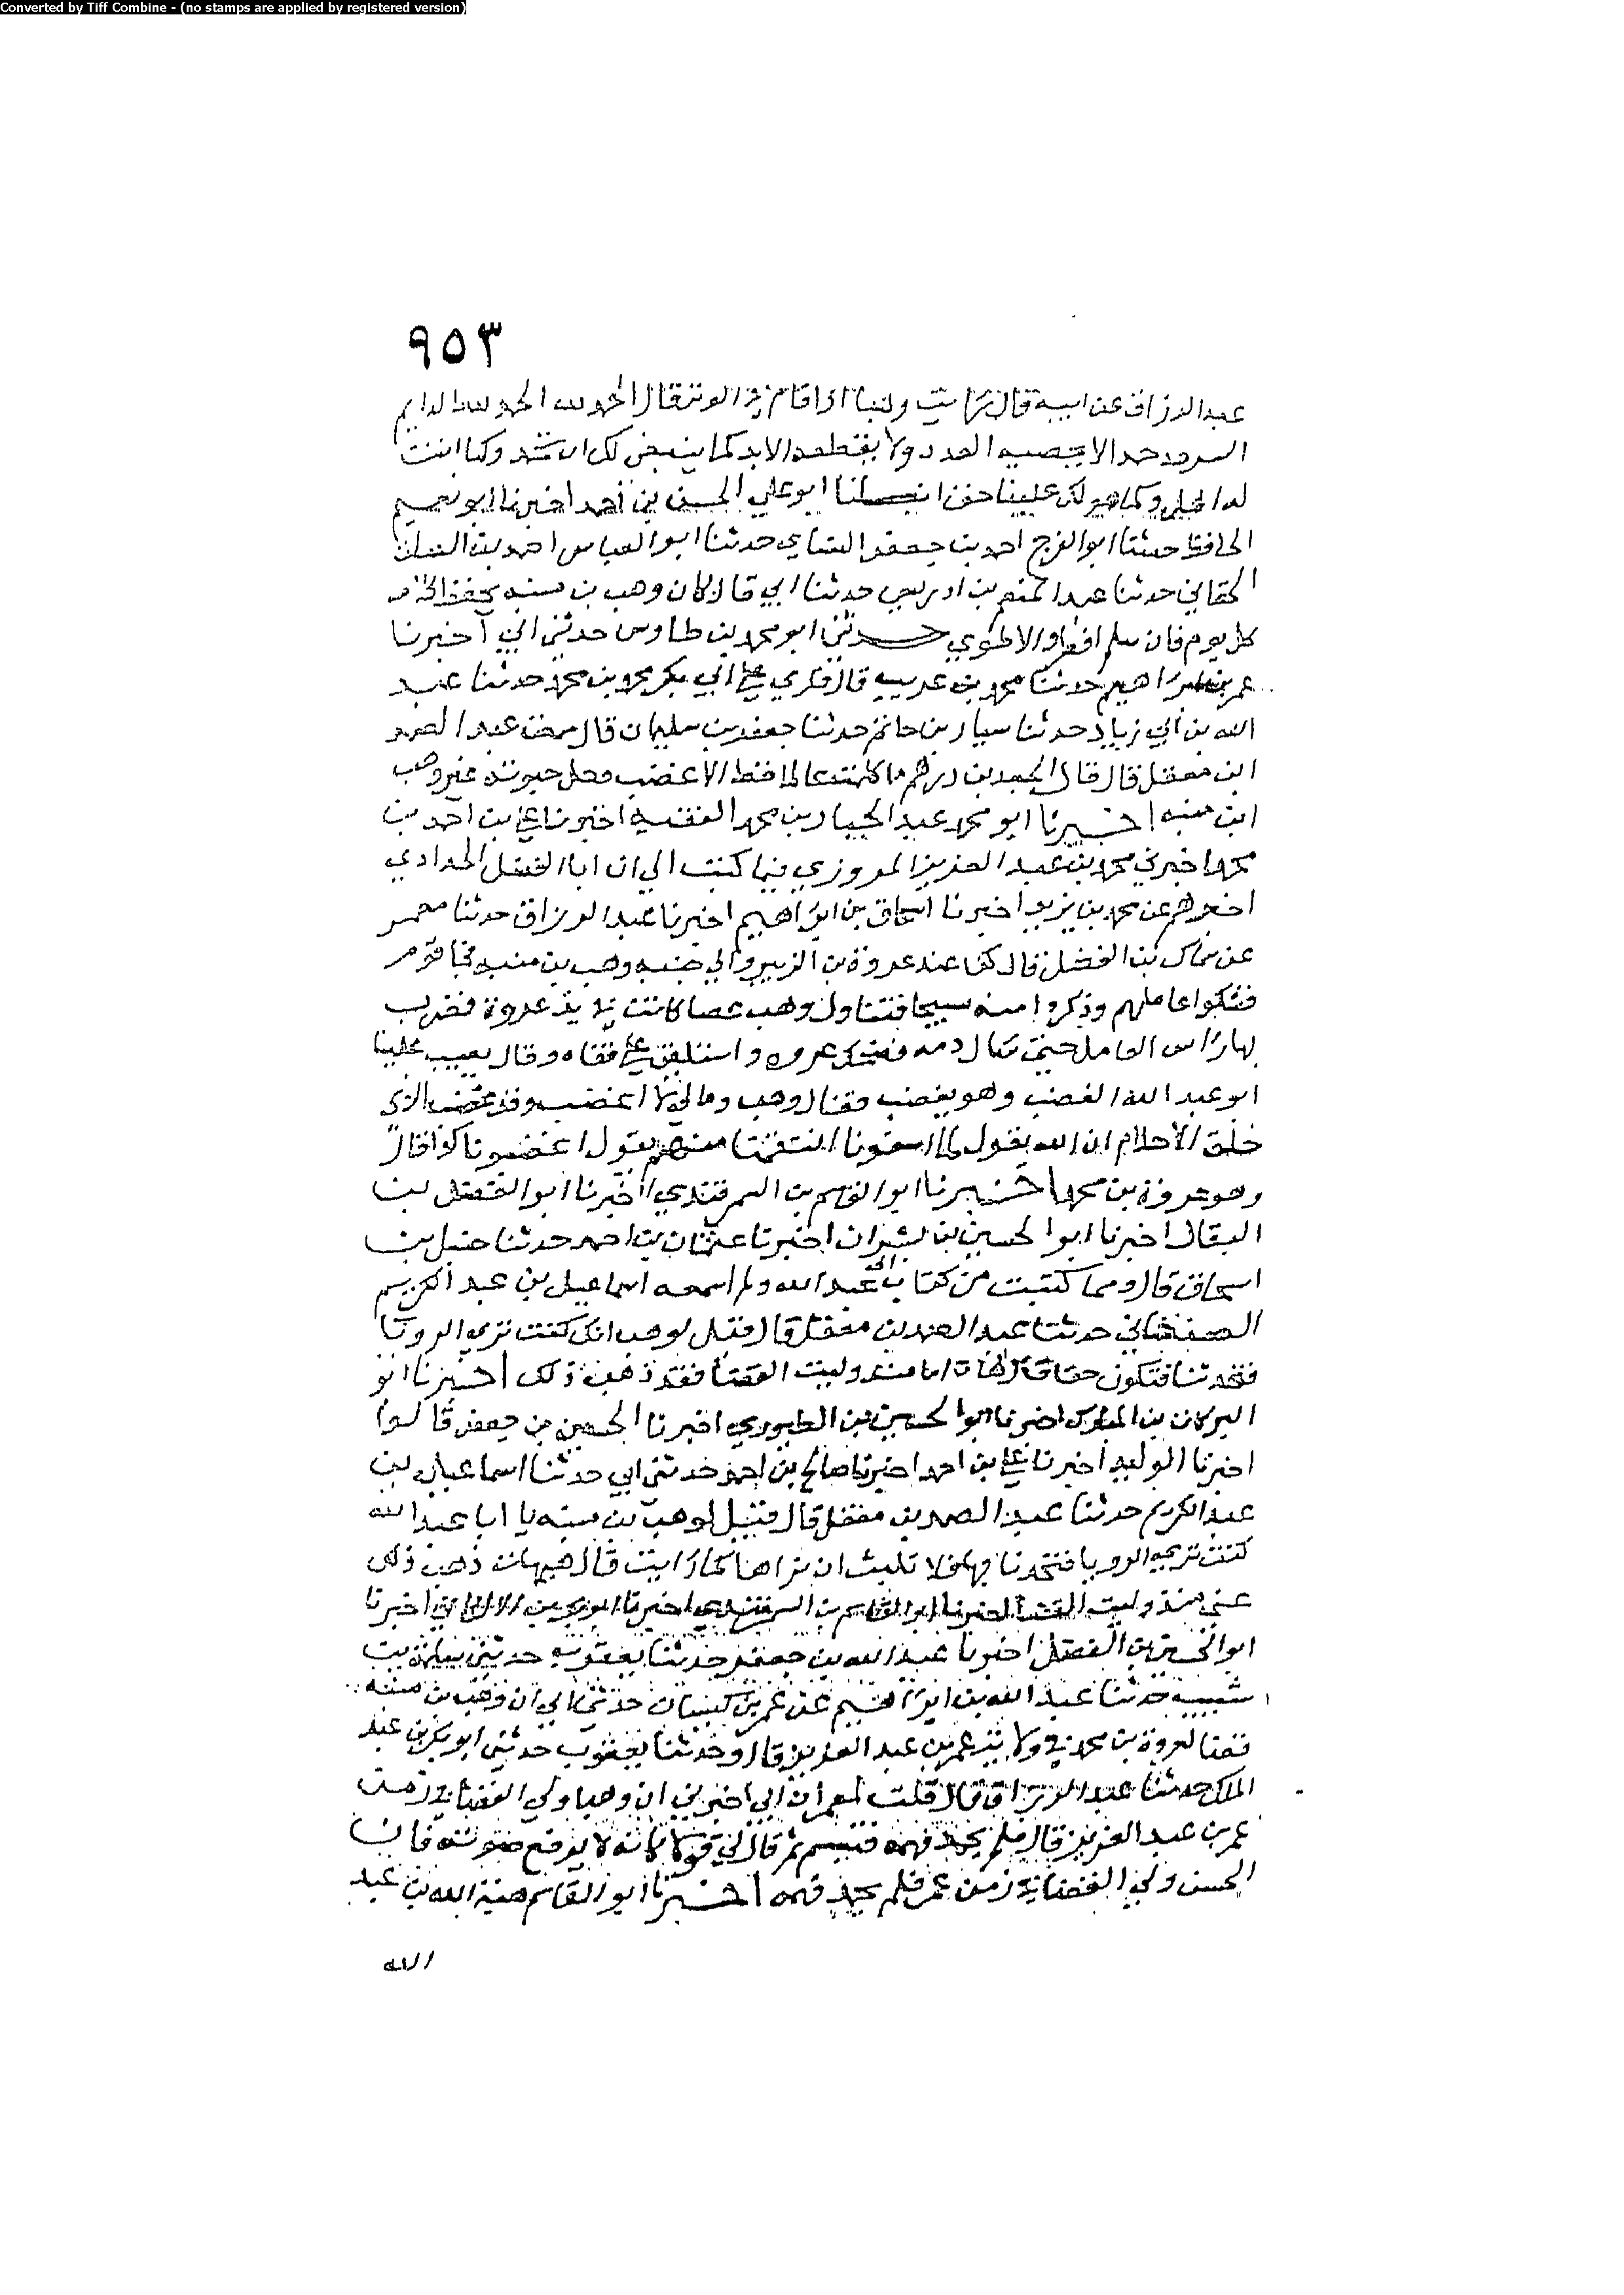 Converted by Tiff Combine - (no stamps are applied by registered version)
٩٥٣
عبد الرزاق عن ابيه قال رايت وهبا اذا قام في الوتر قال الحمد لله الحمد لله الدايم
السرمد حمدا لا يحصيه العدد ولا يقطعه الابد كما ينبغي لك ان تحمد وكما انت
له اهل وكما هو لك علينا حق انبانا ابو علي الحسن بن احمد اخبرنا ابو نعيم
الحافظ حدثنا ابو الفرج احمد بن جعفر النساي حدثنا ابو العباس احمد بن
حدثنا عبد المنعم بن ادريس حدثنا ابي قال كان وهب بن منبه يحفظ كلامه
كل يوم فان سلم افطر والا طوي حدثني ابو محمد بن طاوس حدثني ابي اخبرنا
عمر بن ابراهيم حدثنا محمد بن غريب قال قري علي ابي بكر محمد بن محمد حدثنا عبد
الله بن ابي زياد حدثنا سيار بن حاتم حدثنا جعفر بن سليمان قال عبد الصمد
ابن معقل قال قال الجعد بن درهم ما كلمت عالما قط الا غضب وحل حبوته غير وهب
ابن منبه اخبرنا ابو محمد عبد الجبار بن محمد الفقيه اخبرنا علي بن احمد بن
محمد اخبرني محمد بن عبد العزيز المروزي فيما كتب الي ان ابا الفضل الحدادي
اخبرهم عن محمد بن يزيد اخبرنا اسحاق بن ابراهيم اخبرنا عبد الرزاق حدثنا معمر
عن سماك بن الفضل قال كنا عند عروة بن الزبير والي جنبه وهب بن منبه فجا قوم
فشكوا عاملهم وذكروا منه سييا فتناول وهب عصا كانت في يد عروة فضرب
بها راس العامل حتى سال دمه فضحك عروه واستلقى علي قفاه وقال يعيب علينا
ابو عبد الله الغضب وهو يغضب فقال وهب وما لي لا اغضب وقد غضب الذي
خلق الاحلام ان الله يقول فلما اسفونا انتقمنا منهم يقول اغضبونا كذا قال
وهو عروة بن محمد اخبرنا ابو القسم بن السمرقندي اخبرنا ابو الفضل بن
البقال اخبرنا ابو الحسين بن بشران اخبرنا عثمان بن احمد حدثنا حنبل بن
اسحاق قال ومما كتبت من كتاب ابي عبد الله ولم اسمعه اسماعيل بن عبد الكريم
الصنعاني حدثنا عبد الصمد بن معقل قال قيل لوهب انك كنت تري الرويا
فتحدثنا فتكون حقا قال هيهات اما منذ وليت القضا فقد ذهب ذلك اخبرنا ابو
البركات بن المبارك اخبرنا ابو الحسين بن الطيوري اخبرنا الحسين بن جعفر قالوا
اخبرنا الوليد اخبرنا علي بن احمد اخبرنا صالح بن احمد حدثني ابي حدثنا اسماعيل بن
عبد الكريم حدثنا عبد الصمد بن معقل قال قيل لوهب بن منبه يا ابا عبد الله
كنت تري الرويا فتحدثنا بها فلا تلبث ان نراها كما رايت قال هيهات ذهب ذلك
عني منذ وليت القضا اخبرنا ابو القاسم بن السمرقندي اخبرنا ابو بكر بن اخبرنا
ابو الحسين بن الفضل اخبرنا عبد الله بن جعفر حدثنا يعقوب حدثني سلمة بن
شبيب حدثنا عبد الله بن ابراهيم عن عمر بن كيسان حدثني ابي ان وهب بن منبه
قضا لعروة بن محمد في ولاية عمر بن عبد العزيز قال وحدثنا يعقوب حدثني ابو بكر بن عبد
الملك حدثنا عبد الرزاق قال قلت لمعمر ان ابي اخبرني ان وهبا ولي القضا في زمن
عمر بن عبد العزيز قال فلم يحمد فهمه فتبسم ثم قال لي قولا كانه لا يرفع صوته فان
الحسن ولي القضا في زمن عمر فلم يحمد فهمه اخبرنا ابو القاسم هبة الله بن عبد
الله